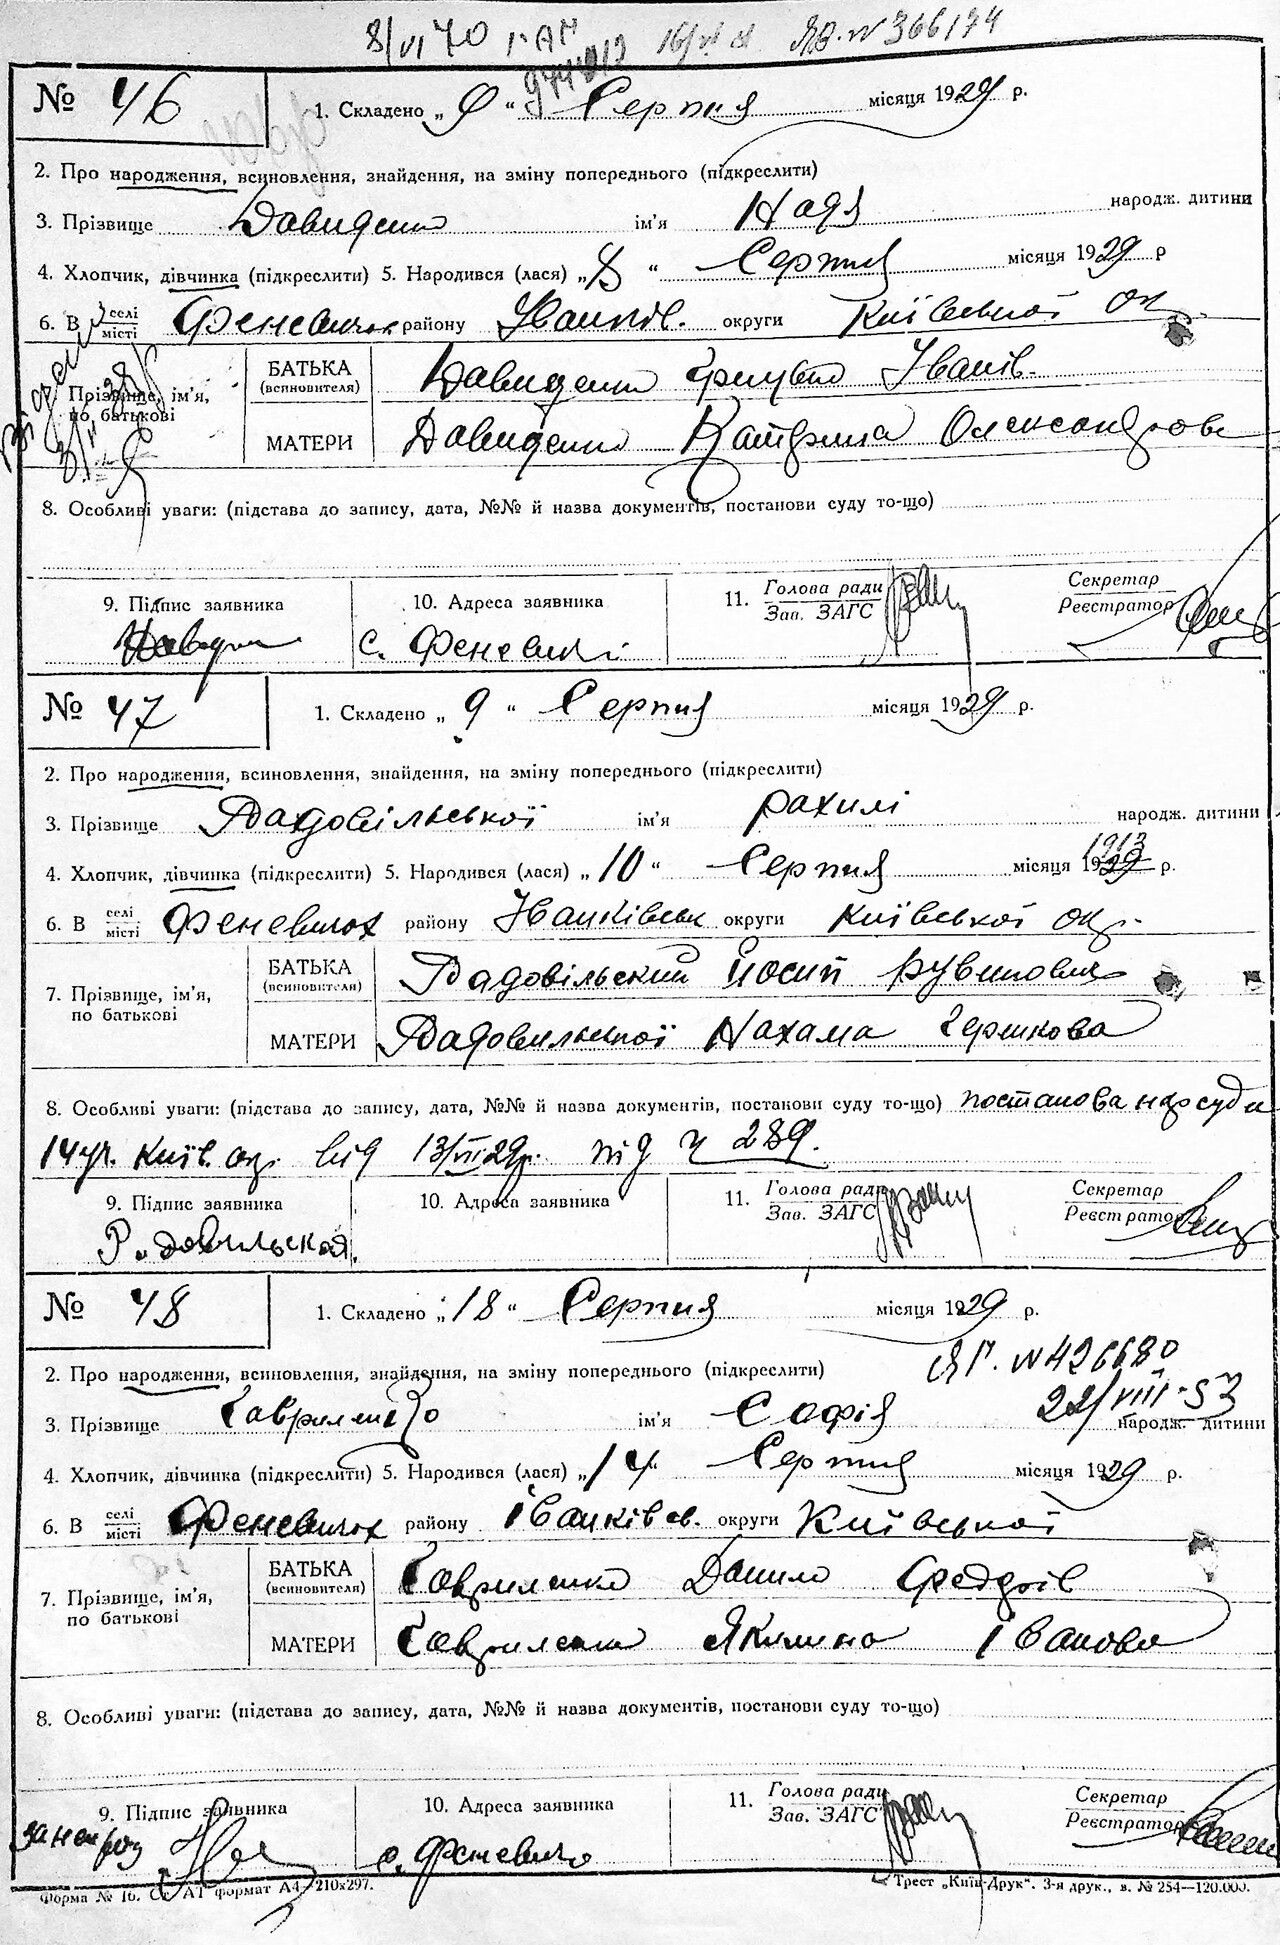 8/VI 70 16/VI ЯА. N 366174
№ 46 1. Складено „ 9 “ Серпня місяця 1929 р.
2. Про народження, всиновлення, знайдення, на зміну попереднього (підкреслити)
3. Прізвище Давиденко ім’я Надя народж. дитини
4. Хлопчик, дівчинка (підкреслити) 5. Народився (лася) „ 8 “ Серпня місяця 1929 р
6. В селі/місті Феневичах району Іванків. округи Київської ок.
Прізвище, ім’я, по батькові
БАТЬКА (всиновителя) Давиденко Іванів.
МАТЕРИ Давиденко Катерина Олександрова
8. Особливі уваги: (підстава до запису, дата, №№ й назва документів, постанови суду то-що)
9. Підпис заявника 10. Адреса заявника 11. Голова ради/Зав. ЗАГС Секретар/Реєстратор
с. Феневичі
№ 47 1. Складено „ 9 “ Серпня місяця 1929 р.
2. Про народження, всиновлення, знайдення, на зміну попереднього (підкреслити)
3. Прізвище Радовільської ім’я Рахилі народж. дитини
1913
4. Хлопчик, дівчинка (підкреслити) 5. Народився (лася) „ 10 “ Серпня місяця 1929 р.
6. В селі/місті Феневичах району Іванківськ округи Київської ок.
7. Прізвище, ім’я, по батькові
БАТЬКА (всиновителя) Радовільский Йосип Рувинович
МАТЕРИ Радовильської Нахама Гершкова
8. Особливі уваги: (підстава до запису, дата, №№ й назва документів, постанови суду то-що) постанова нарсуду
14 уч. Київ. ок. від 13/VII 29р. під ч 289.
9. Підпис заявника 10. Адреса заявника 11. Голова ради/Зав. ЗАГС Секретар/Реєстратор
Радовильская
№ 48 1. Складено „ 18 “ Серпня місяця 1929 р.
2. Про народження, всиновлення, знайдення, на зміну попереднього (підкреслити) ЯГ. N 426680
22/VIII-53
3. Прізвище Гавриленко ім’я Софія народж. дитини
4. Хлопчик, дівчинка (підкреслити) 5. Народився (лася) „ 14 “ Серпня місяця 1929 р.
6. В селі/місті Феневичах району Іванківсв. округи Київської
7. Прізвище, ім’я, по батькові
БАТЬКА (всиновителя) Гавриленко Данило Федорів
МАТЕРИ Гавриленко Якилина Іванова
8. Особливі уваги: (підстава до запису, дата, №№ й назва документів, постанови суду то-що)
9. Підпис заявника 10. Адреса заявника 11. Голова ради/Зав. ЗАГС Секретар/Реєстратор
с. Феневичі
Форма № 16. Ст. А1 формат А4—210х297. Трест „Київ-Друк“. 3-я друк., в. № 254—120.000.